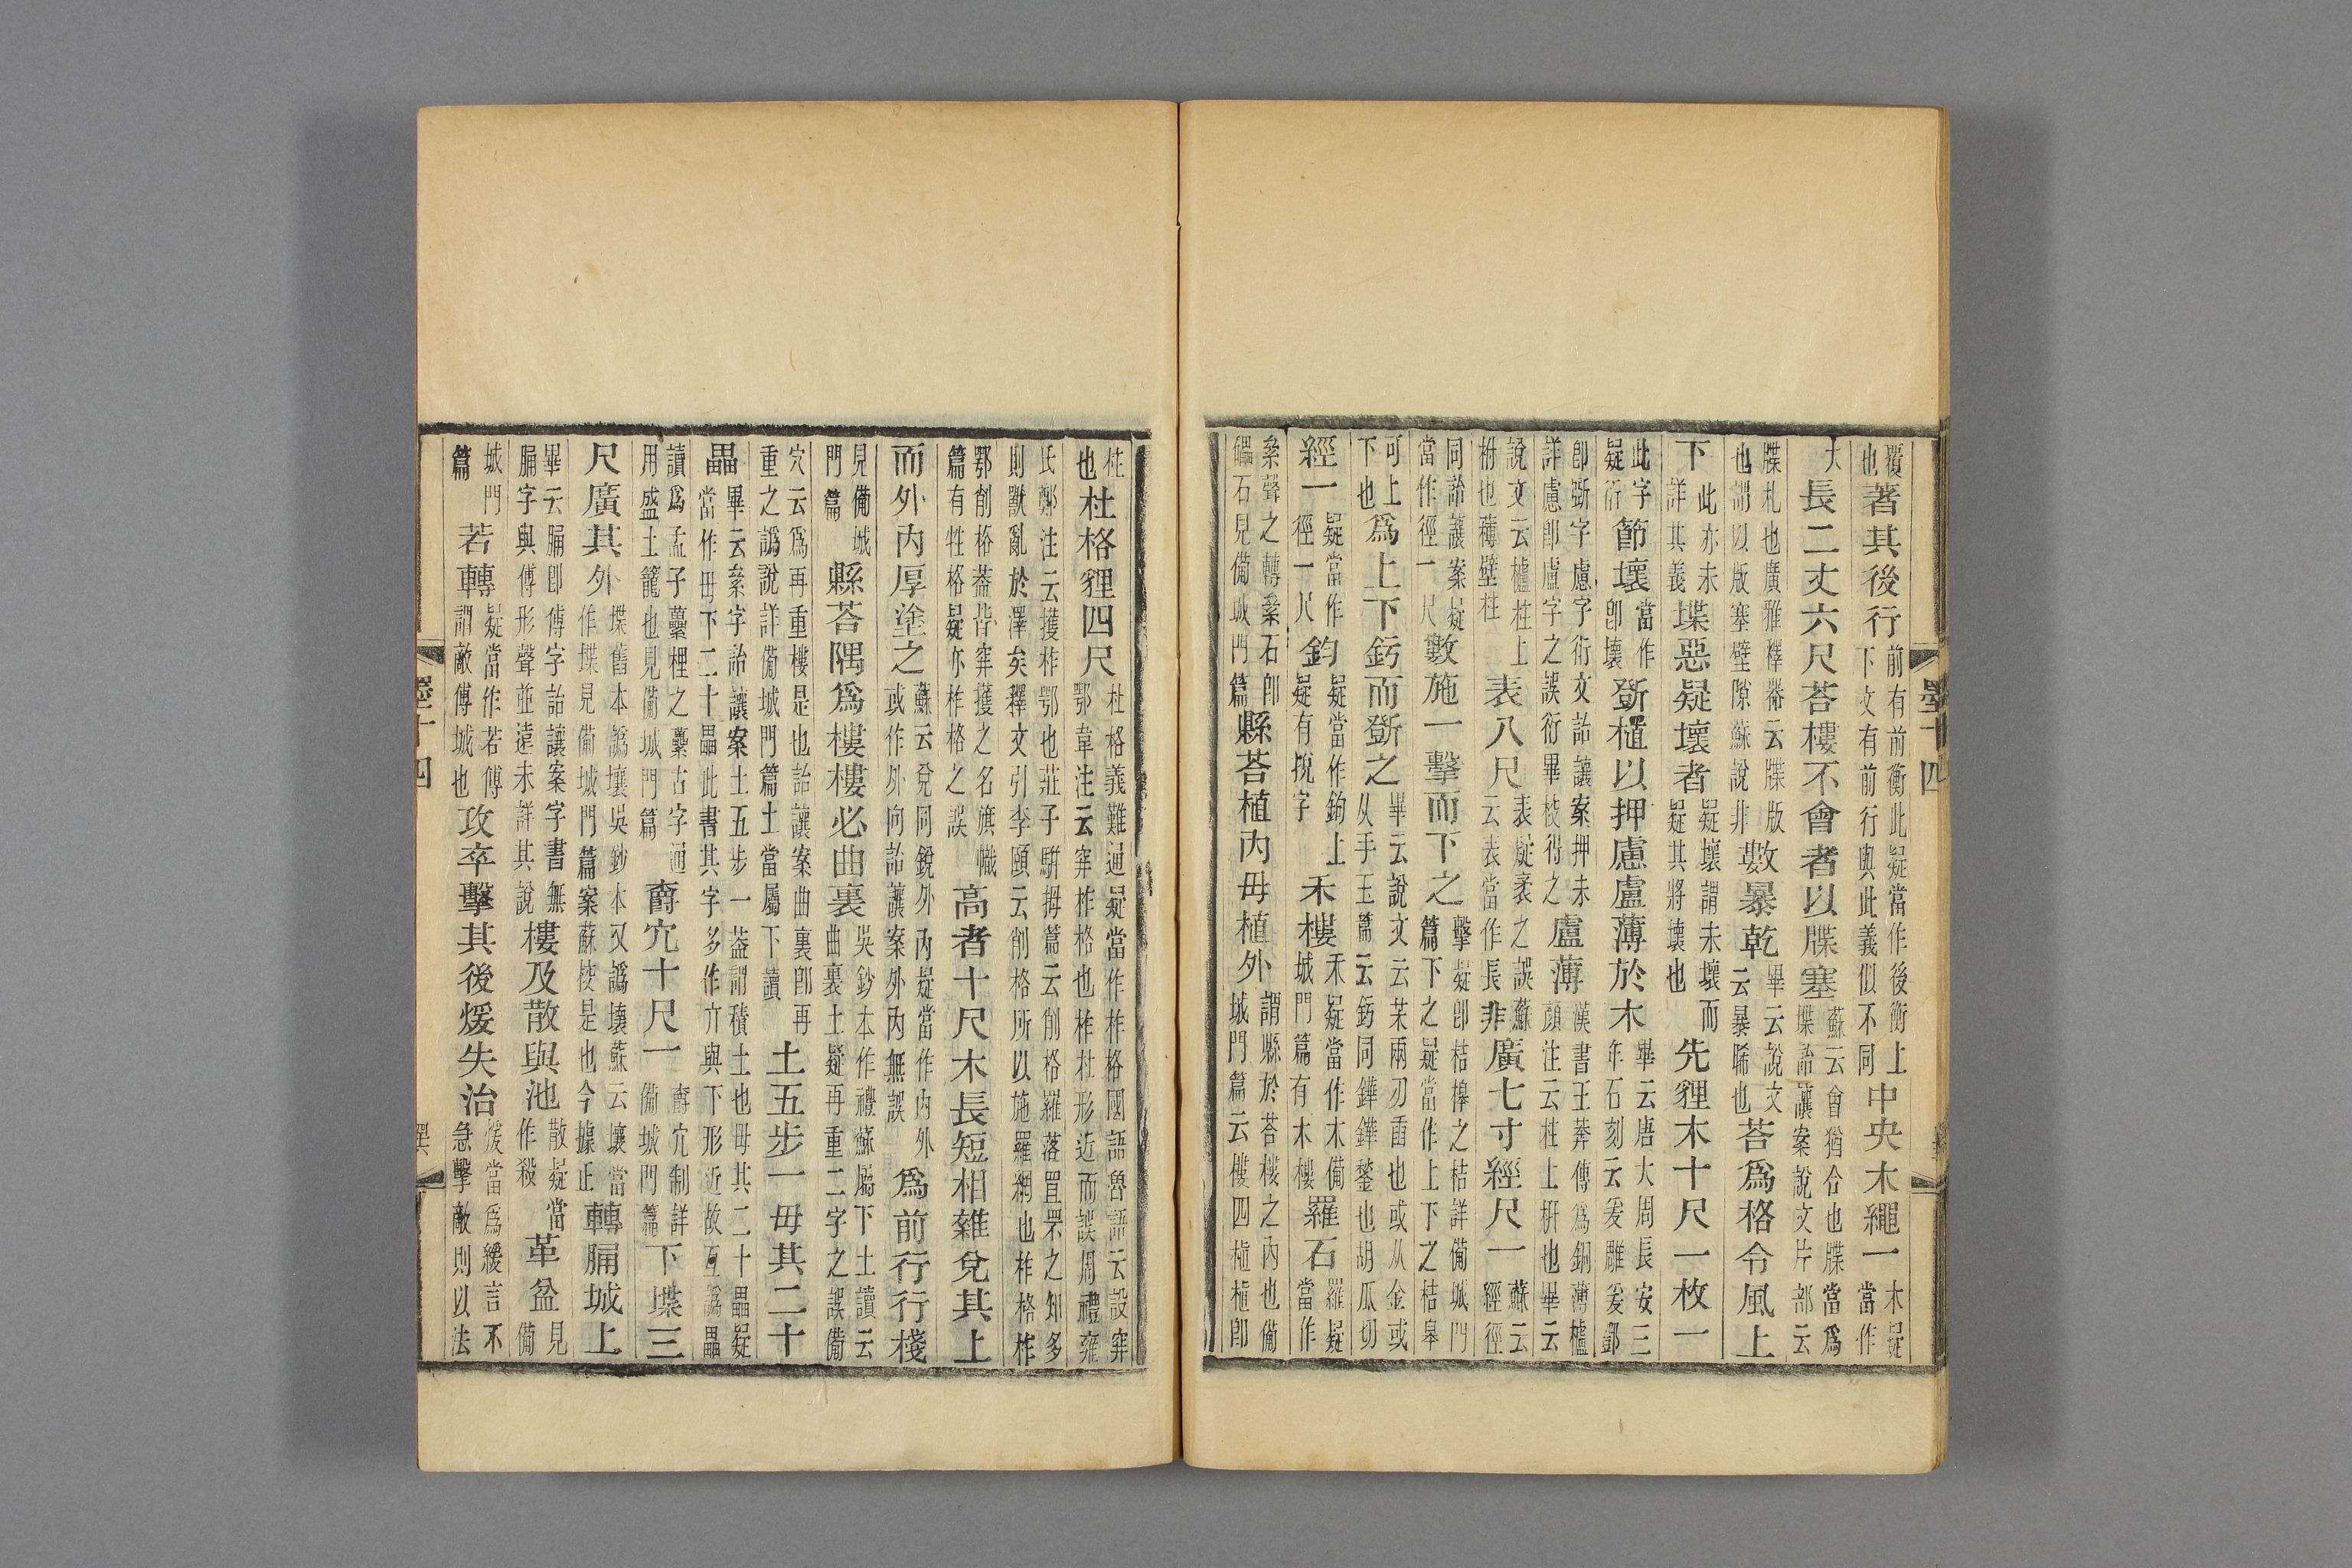 覆也著其後行前有前衡此疑當作後衡上下文有前行與此義似不同中央木繩一木疑當作
大長二丈六尺荅樓不會者以牒塞蘇云會猶合也牒當爲堞詒讓案說文片部云
牒札也廣雅釋器云牒版也謂以版塞壁隙蘇說非數暴乾畢云說文云暴晞也荅爲格令風上
下此亦未詳其義堞惡疑壞者疑壞謂未壞而疑其將壞也先貍木十尺一枚一
此字疑衍節壞當作卽壞斲植以押慮盧薄於木畢云唐大周長安三年石刻云爰雕爰鄧
卽斲字慮字衍文詒讓案押未詳慮卽盧字之誤衍畢校得之盧薄漢書王莽傳爲銅薄櫨顏注云柱上枅也畢云
說文云櫨柱上柎也薄壁柱表八尺表疑袤之誤蘇云表當作長非廣七寸經尺一蘇云經徑
同詒讓案疑當作徑一尺數施一擊而下之擊疑卽桔槔之桔詳備城門篇下之疑當作上下之桔皋
可上下也爲上下釫而斲之畢云說文云茉兩刃臿也或从金或从手玉篇云釫同鏵鏵鍫也胡瓜切
經一疑當作徑一尺鈞疑當作鉤上疑有挩字禾樓禾疑當作木備城門篇有木樓羅石羅疑當作
絫聲之轉絫石卽礧石見備城門篇縣荅植內毋植外謂縣於荅樓之內也備城門篇云樓四植植卽
墨十四
柱也杜格貍四尺杜格義難通疑當作柞格國語魯語云設穽鄂韋注云穽柞格也柞杜形近而誤周禮雍
氏鄭注云擭柞鄂也莊子胠拇篇云削格羅落罝罘之知多則獸亂於澤矣釋文引李頤云削格所以施羅網也柞格柞
鄂削格蓋皆穽擭之名旗幟篇有牲格疑亦柞格之誤高者十尺木長短相雜兌其上
而外內厚塗之蘇云兌同銳外內疑當作內外或作外向詒讓案外內無誤爲前行行棧
見備城門篇縣荅隅爲樓樓必曲裏吳鈔本作禮蘇屬下土讀云曲裏土疑再重二字之誤備
穴云爲再重樓是也詒讓案曲裏卽再重之譌說詳備城門篇土當屬下讀土五步一毋其二十
畾畢云絫字詒讓案土五步一蓋謂積土也毋其二十畾疑當作毋下二十畾此書其字多作亣與下形近故互譌畾
讀爲孟子虆梩之虆古字通用盛土籠也見備城門篇爵穴十尺一爵穴制詳備城門篇下堞三
尺廣其外堞舊本譌壞吳鈔本又譌壤蘇云壞當作堞見備城門篇案蘇校是也今據正轉㢏城上
畢云㢏卽傅字詒讓案字書無㢏字與傅形聲並遠未詳其說樓及散與池散疑當作殺革盆見備
城門篇若轉疑當作若傅謂敵傅城也攻卒擊其後煖失治煖當爲緩言不急擊敵則以法
墨十四